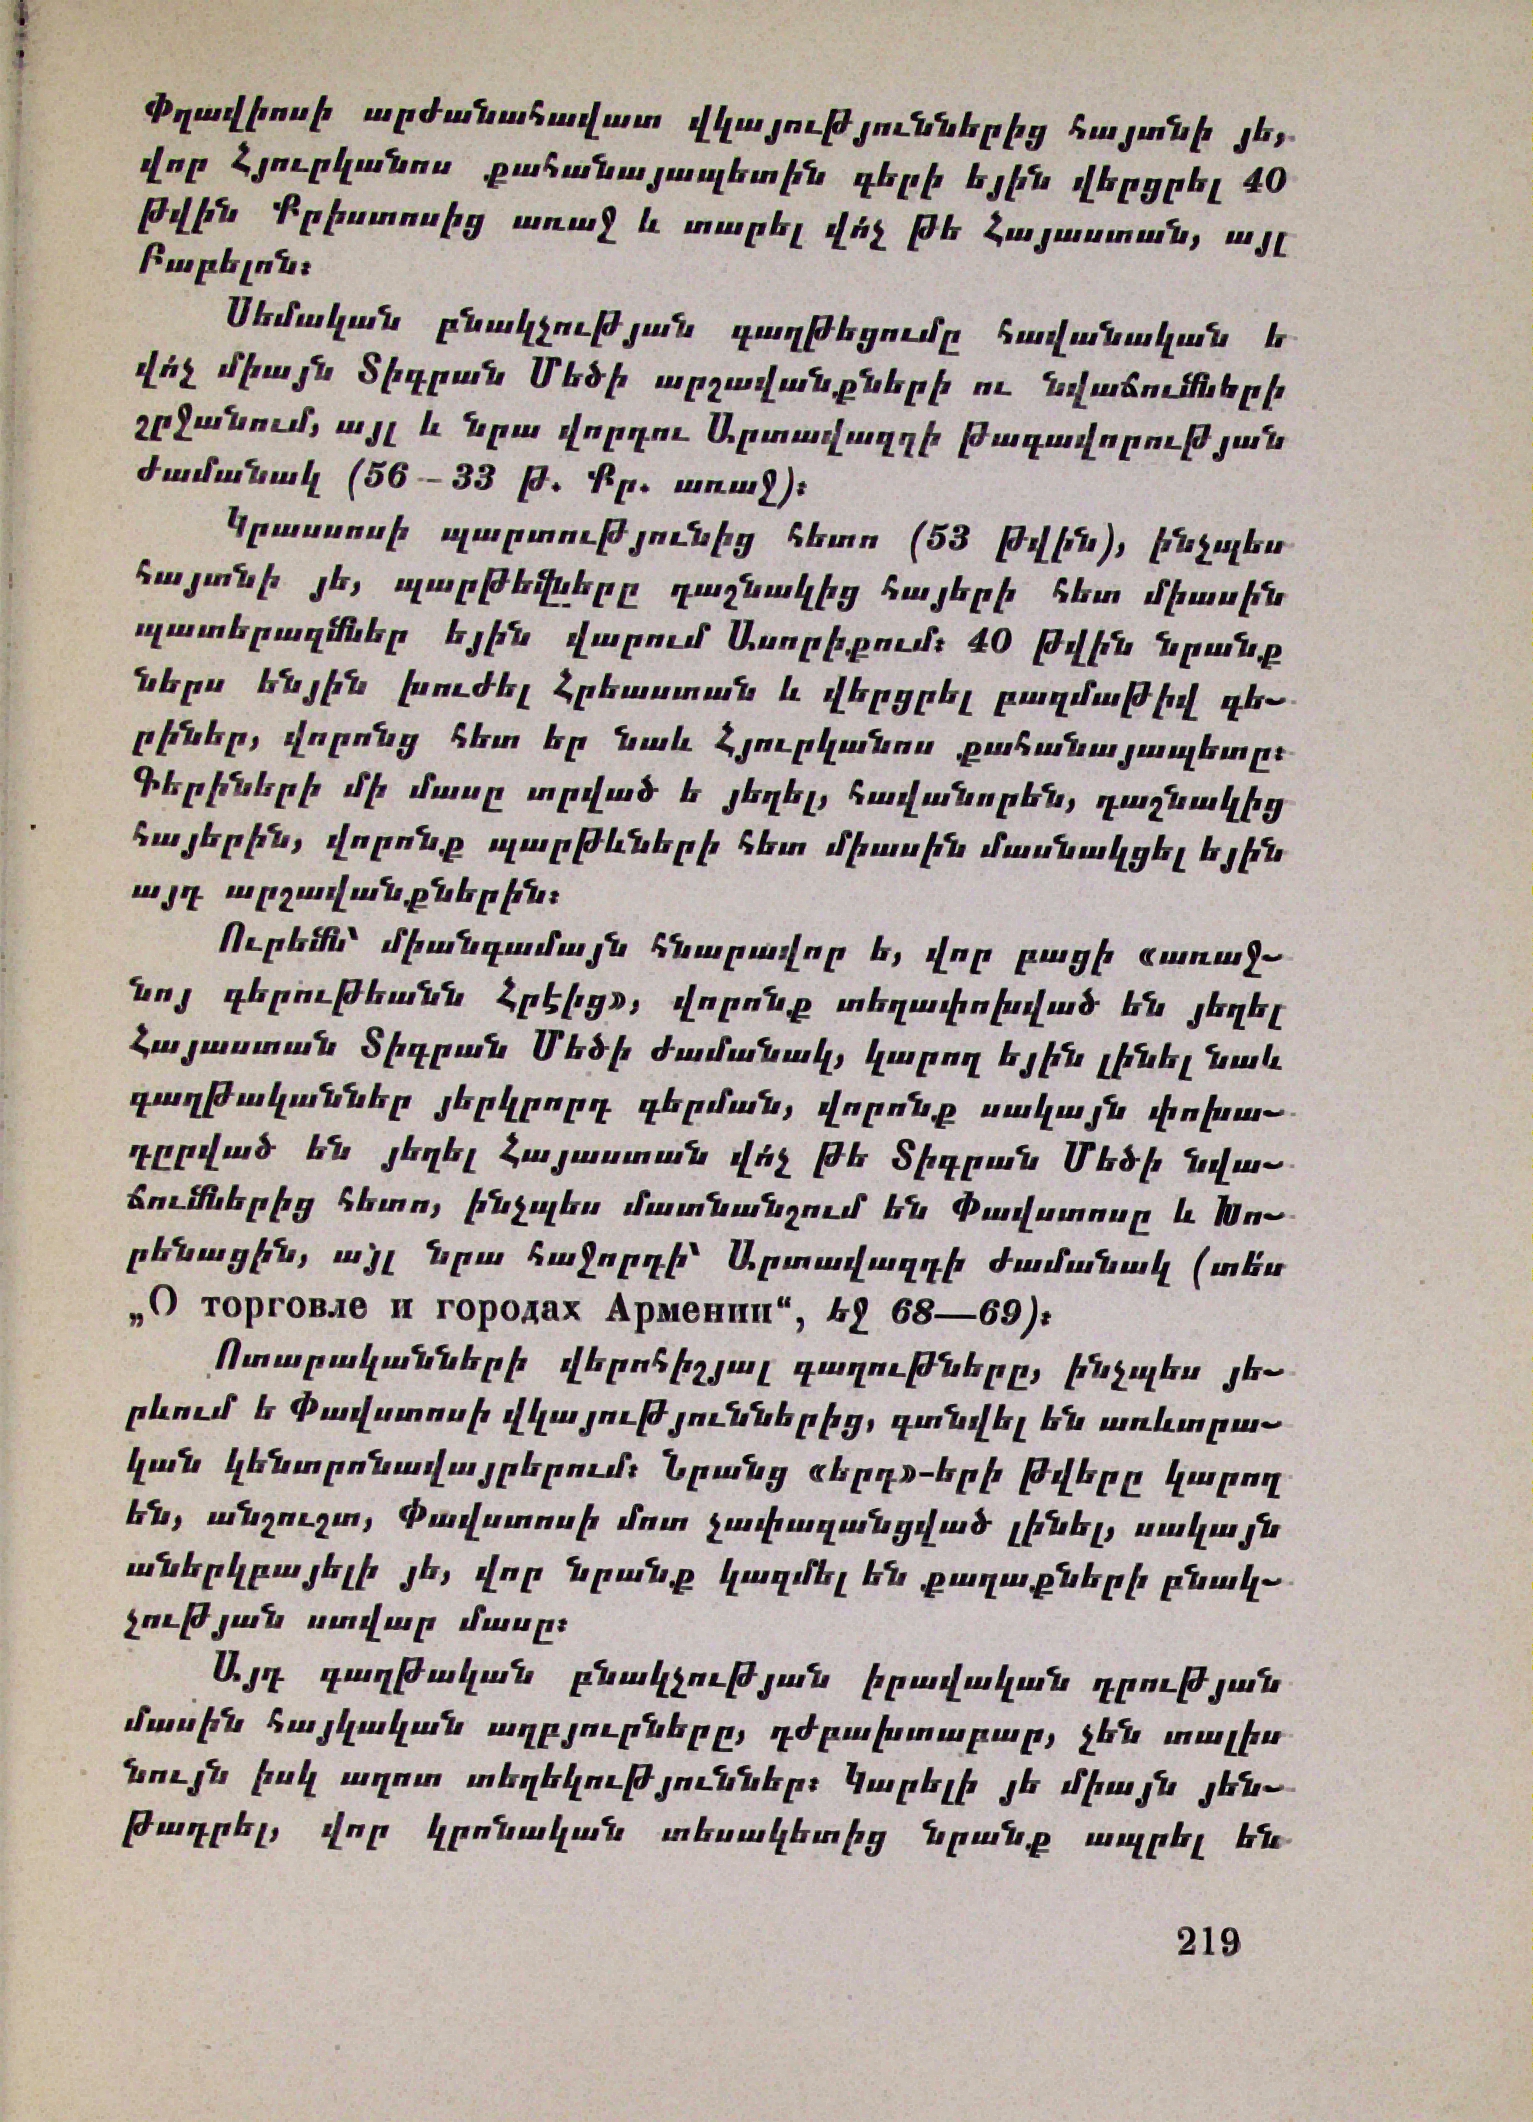 Փղավիոսի արժանահավատ վկայություններից հայտնի յե,
վոր Հյուրկանոս քահանայապետին գերի եյին վերցրել 40
թվին Քրիստոսից առաջ և տարել վո՛չ թե Հայաստան, այլ
Բաբելոն։
Սեմական բնակչության գաղթեցումը հավանական ե
վո՛չ միայն Տիգրան Մեծի արշավանքների ու նվաճումների
շրջանում, այլ և նրա վորդու Արտավազդի թագավորության
ժամանակ (56–33 թ. Քր. առաջ)։
Կրասսոսի պարտությունից հետո (53 թվին), ինչպես
հայտնի յե, պարթեվները դաշնակից հայերի հետ միասին
պատերազմներ եյին վարում Ասորիքում։ 40 թվին նրանք
ներս ենյին խուժել Հրեաստան և վերցրել բազմաթիվ գե-
րիներ, վորոնց հետ եր նաև Հյուրկանոս քահանայապետը։
Գերիների մի մասը տրված ե յեղել, հավանորեն, դաշնակից
հայերին, վորոնք պարթևների հետ միասին մասնակցել եյին
այդ արշավանքներին։
Ուրեմն՝ միանգամայն հնարավոր ե, վոր բացի «առաջ-
նոյ գերութեանն Հրէից», վորոնք տեղափոխված են յեղել
Հայաստան Տիգրան Մեծի ժամանակ, կարող եյին լինել նաև
գաղթականներ յերկրորդ գերման, վորոնք սակայն փոխա-
դըրված են յեղել Հայաստան վո՛չ թե Տիգրան Մեծի նվա-
ճումներից հետո, ինչպես մատնանշում են Փավստոսը և Խո-
րենացին, այլ նրա հաջորդի՝ Արտավազդի ժամանակ (տե՛ս
„О торговле и городах Армении“, եջ 68—69)։
Ոտարականների վերոհիշյալ գաղութները, ինչպես յե-
րևում ե Փավստոսի վկայություններից, գտնվել են առևտրա-
կան կենտրոնավայրերում։ Նրանց «երդ»-երի թվերը կարող
են, անշուշտ, Փավստոսի մոտ չափազանցված լինել, սակայն
աներկբայելի յե, վոր նրանք կազմել են քաղաքների բնակ-
չության ստվար մասը։
Այդ գաղթական բնակչության իրավական դրության
մասին հայկական աղբյուրները, դժբախտաբար, չեն տալիս
նույն իսկ աղոտ տեղեկություններ։ Կարելի յե միայն յեն-
թադրել, վոր կրոնական տեսակետից նրանք ապրել են
219